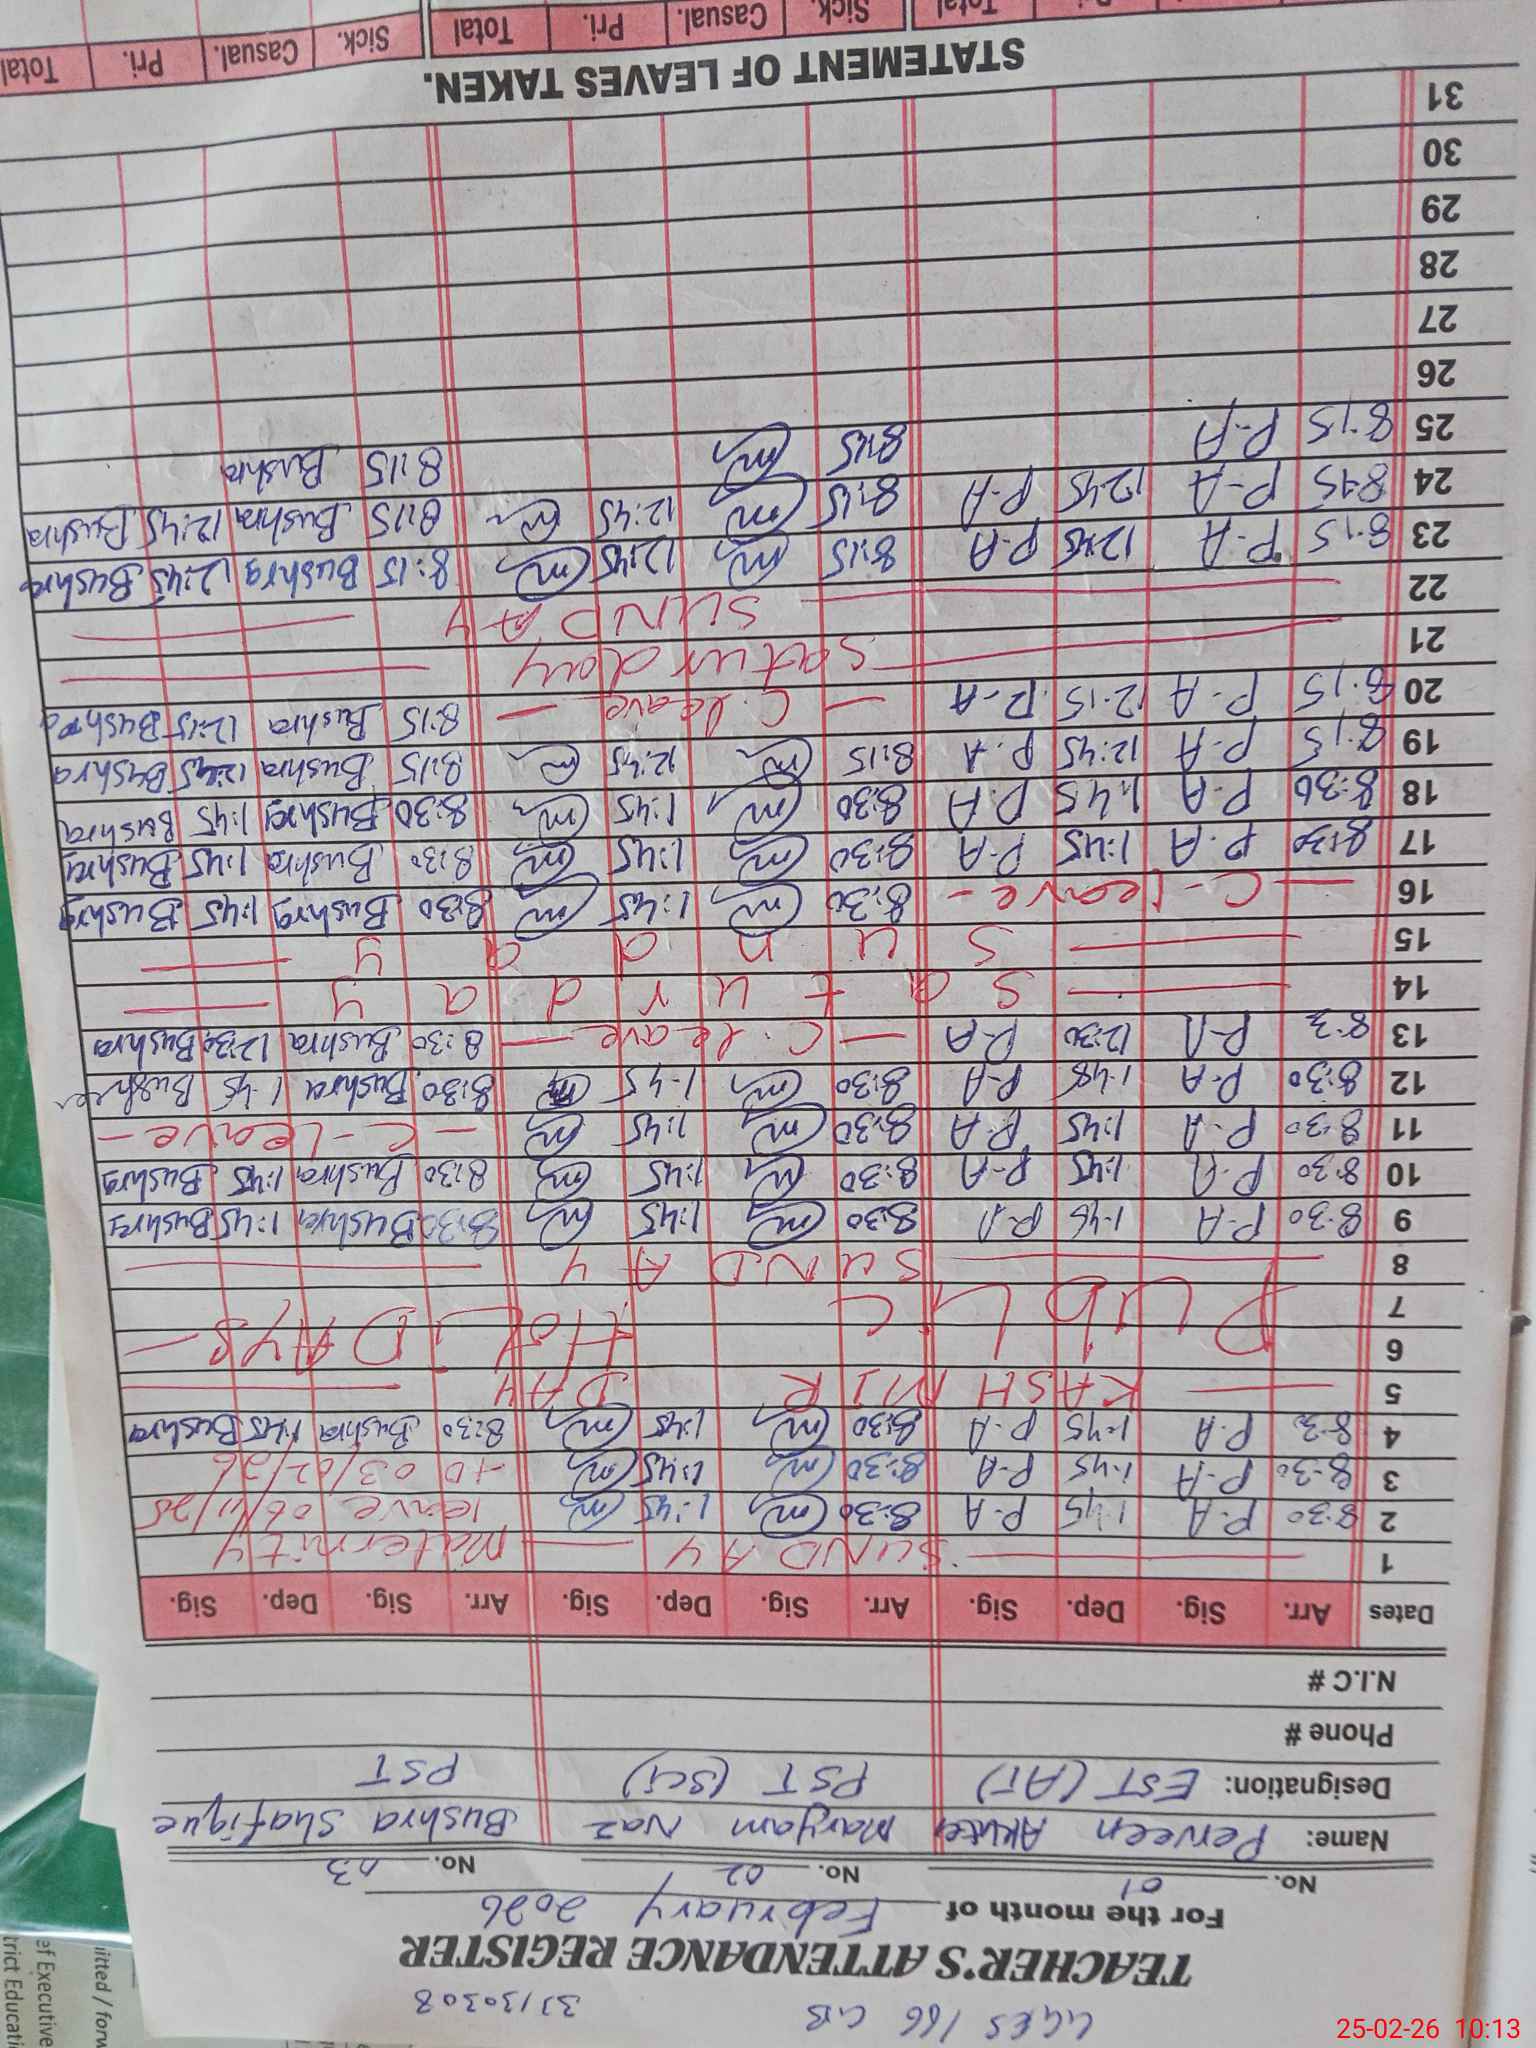 GGES 166 GB 33130308
TEACHER'S ATTENDANCE REGISTER
For the month of February 2026
No. 01 No. 02 No. 03
Name: Perveen Akhter Maryam Naz Bushra Shafique
Designation: EST (AT) PST (SG) PST
Phone #
N.I.C #
Dates Arr. Sig. Dep. Sig. Arr. Sig. Dep. Sig. Arr. Sig. Dep. Sig.
1 SUNDAY Maternity
2 8:30 P.A 1:45 P-A 8:30 m 1:45 m leave 06/11/25
3 8:30 P-A 1:45 P-A 8:30 m 1:45 m to 03/02/26
4 8:3 P.A 1:45 P-A 8:30 m 1:45 m 8:30 Bushra 1:45 Bushra
5 KASHMIR DAY
6 PUbLIC HOLIDAYS
7
8 SUNDAY
9 8:30 P-A 1:45 P-A 8:30 m 1:45 m 8:30 Bushra 1:45 Bushra
10 8:30 P.A 1:45 P-A 8:30 m 1:45 m 8:30 Bushra 1:45 Bushra
11 8:30 P-A 1:45 P-A 8:30 m 1:45 m - C-Leave -
12 8:30 P.A 1:45 P-A 8:30 m 1-45 m 8:30 Bushra 1-45 Bushra
13 8:3 P-A 12:30 P-A - C.leave - 8:30 Bushra 12:30 Bushra
14 Saturday
15 Sunday
16 - C-Leave - 8:30 m 1:45 m 8:30 Bushra 1:45 Bushra
17 8:30 P.A 1:45 P-A 8:30 m 1:45 m 8:30 Bushra 1:45 Bushra
18 8:30 P.A 1:45 P.A 8:30 m 1:45 m 8:30 Bushra 1:45 Bushra
19 8:15 P-A 12:45 P.A 8:15 m 12:45 m 8:15 Bushra 12:45 Bushra
20 8:15 P-A 12:15 P-A - C.leave - 8:15 Bushra 12:15 Bushra
21 Saturday
22 SUNDAY
23 8:15 P-A 12:45 P-A 8:15 m 12:45 m 8:15 Bushra 12:45 Bushra
24 8:15 P-A 12:45 P-A 8:15 m 12:45 m 8:15 Bushra 12:45 Bushra
25 8:15 P-A 8:15 m 8:15 Bushra
26
27
28
29
30
31
STATEMENT OF LEAVES TAKEN.
Total Sick. Casual. Pri. Total Sick. Casual. Pri. Total
itted / forw
ef Executive
trict Educati
25-02-26 10:13